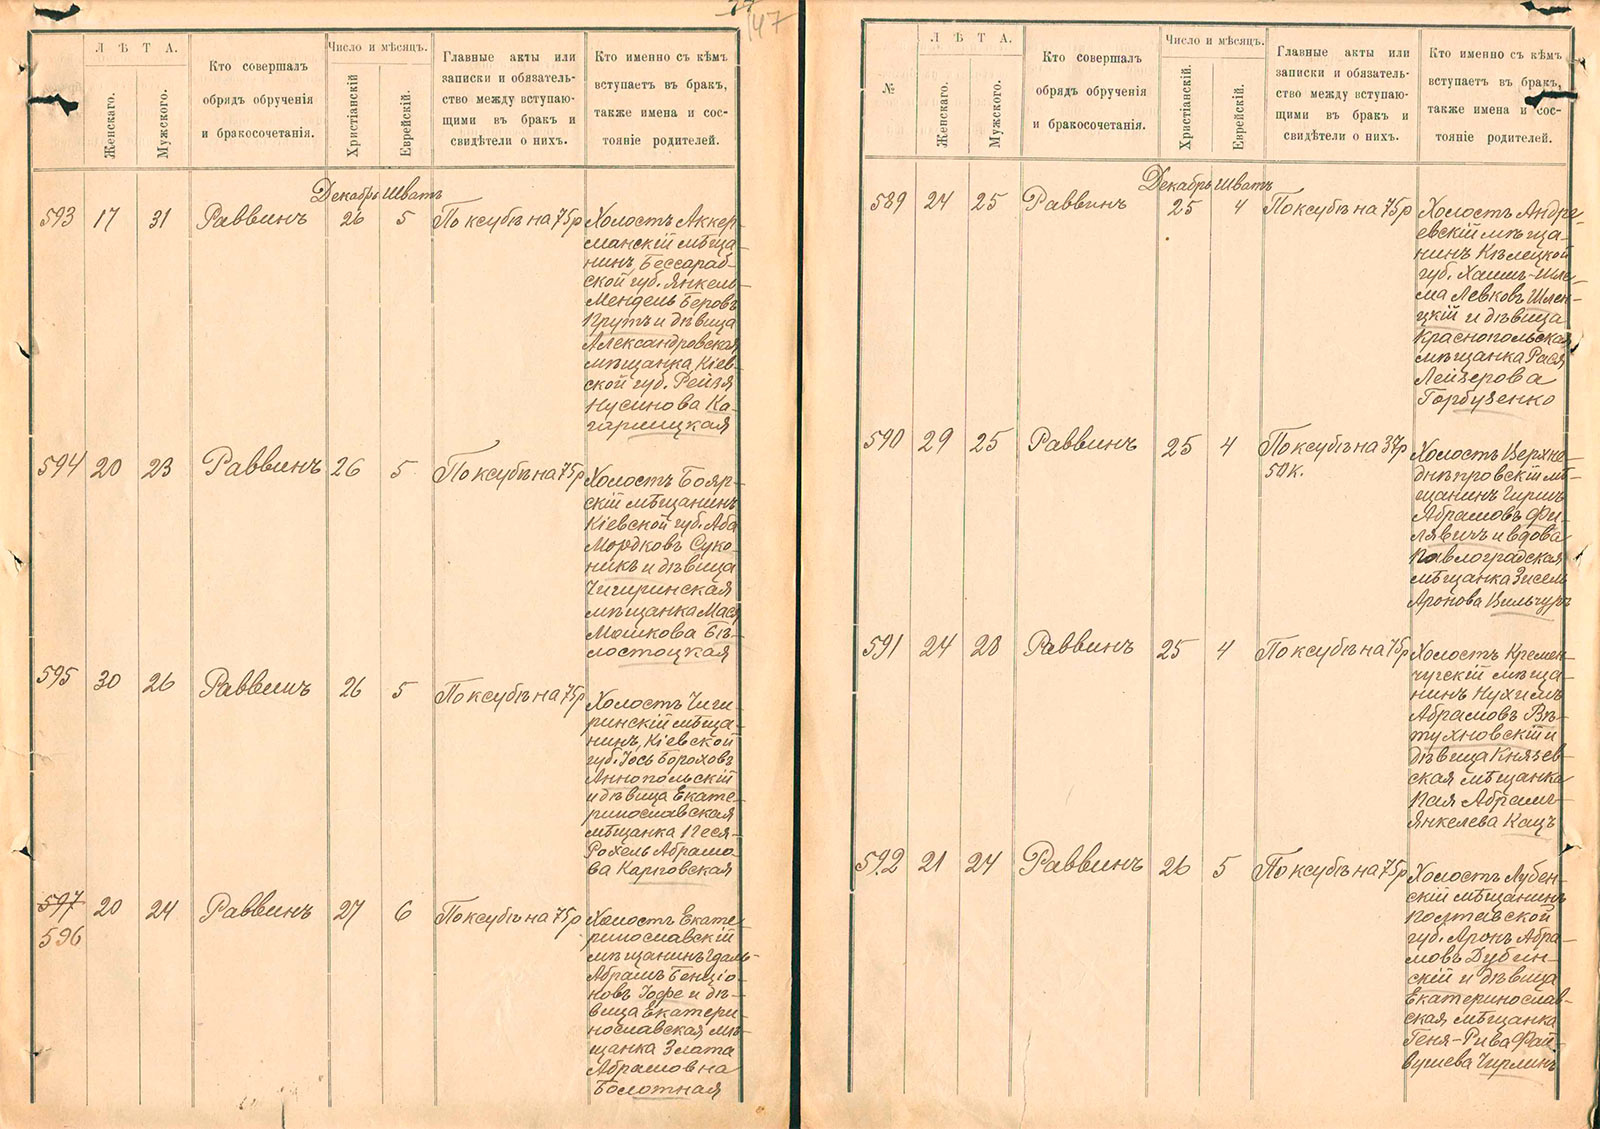 147
Л Ѣ Т А.
Женскаго.
Мужского.
Кто совершалъ
обрядъ обрученія
и бракосочетанія.
Число и мѣсяцъ.
Христіанскій
Еврейскій.
Главные акты или
записки и обязатель-
ство между вступаю-
щими въ бракъ и
свидѣтели о нихъ.
Кто именно съ кѣмъ
вступаетъ въ бракъ,
также имена и сос-
тояніе родителей.
Декабрь Шватъ
593 17 31 Раввинъ 26 5 По ксубѣ на 75р
Холостъ Аккер-
манскій мѣща-
нинъ, Бессараб-
ской губ. Янкель-
Мендель Беровъ
Крутъ и дѣвица
Александровская
мѣщанка, Кіев-
ской губ. Рейзя
Нусинова Ка-
гарлицкая
594 20 23 Раввинъ 26 5 По ксубѣ на 75р
Холостъ Бояр-
скій мѣщанинъ
Кіевской губ. Аба
Мордковъ Суко-
никъ и дѣвица
Чигиринская
мѣщанка Мася
Мошкова Бѣ-
лостоцкая
595 30 26 Раввинъ 26 5 По ксубѣ на 75р
Холостъ Чиги-
ринскій мѣща-
нинъ, Кіевской
губ. Іось Бороховъ
Аннопольскій
и дѣвица Екате-
ринославская
мѣщанка Песя-
Рохель Абрамо-
ва Карповская
597
596 20 24 Раввинъ 27 6 По ксубѣ на 75р
Холостъ Екате-
ринославскій
мѣщанинъ Удаль-
Абрамъ Бенціо-
новъ Іофе и дѣ-
вица Екатери-
нославская, мѣ-
щанка Злата
Абрамовна
Болотная
№
Л Ѣ Т А.
Женскаго.
Мужского.
Кто совершалъ
обрядъ обрученія
и бракосочетанія.
Число и мѣсяцъ.
Христіанскій.
Еврейскій.
Главные акты или
записки и обязатель-
ство между вступаю-
щими въ бракъ и
свидѣтели о нихъ.
Кто именно съ кѣмъ
вступаетъ въ бракъ,
также имена и сос-
тояніе родителей.
Декабрь Шватъ
589 24 25 Раввинъ 25 4 По ксубѣ на 75р
Холостъ Андре-
евскій мѣща-
нинъ Кѣлецкой
губ. Хаимъ-Шле-
ма Левковъ Шлен-
цкій и дѣвица
Краснопольская
мѣщанка Рася
Лейзерова
Горбузенко
590 29 25 Раввинъ 25 4 По ксубѣ на 37р
50к.
Холостъ Верхне-
днѣпровскій мѣ-
щанинъ Гиршъ
Абрамовъ Фи-
лявичъ и вдова
Павлоградская
мѣщанка Зисель
Аронова Вильчуръ
591 24 28 Раввинъ 25 4 По ксубѣ на 75р
Холостъ Кремен-
чугскій мѣща-
нинъ Нухимъ
Абрамовъ Вѣ-
тухновскій и
дѣвица Князев-
ская мѣщанка
Хая Абрамъ-
Янкелева Кацъ
592 21 24 Раввинъ 26 5 По ксубѣ на 75р
Холостъ Лубен-
скій мѣщанинъ
Полтавской
губ. Аронъ Абра-
мовъ Дубин-
скій и дѣвица
Екатеринослав-
ская мѣщанка
Геня-Рива Фай-
вушева Чирлинъ